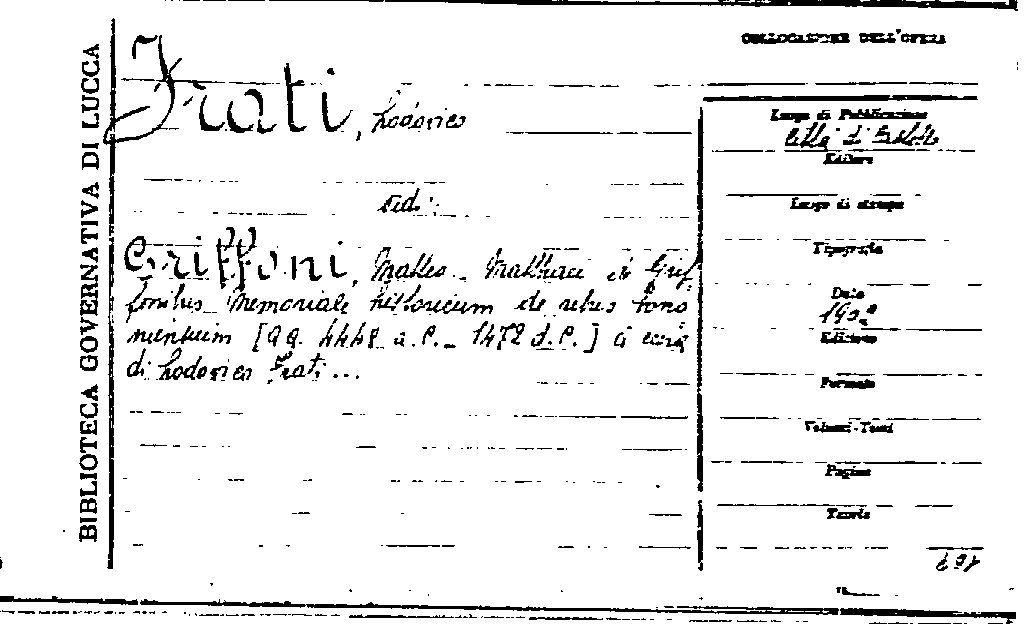 BIBLIOTECA GOVERNATIVA DI LUCCA
COLLOCAZIONE DELL'OPERA
Frati, Lodovico
ved:
Griffoni, Matteo - Matthaei de Grif-
fonibus Memoriale historicum de rebus bono
niensium [aa. 4448 a.C. - 1472 d.C.] a cura
di Lodovico Frati...
Luogo di Pubblicazione
Città di Castello
Editore
Luogo di stampa
Tipografia
Data
1902
Edizione
Formato
Volumi-Tomi
Pagine
Tavole